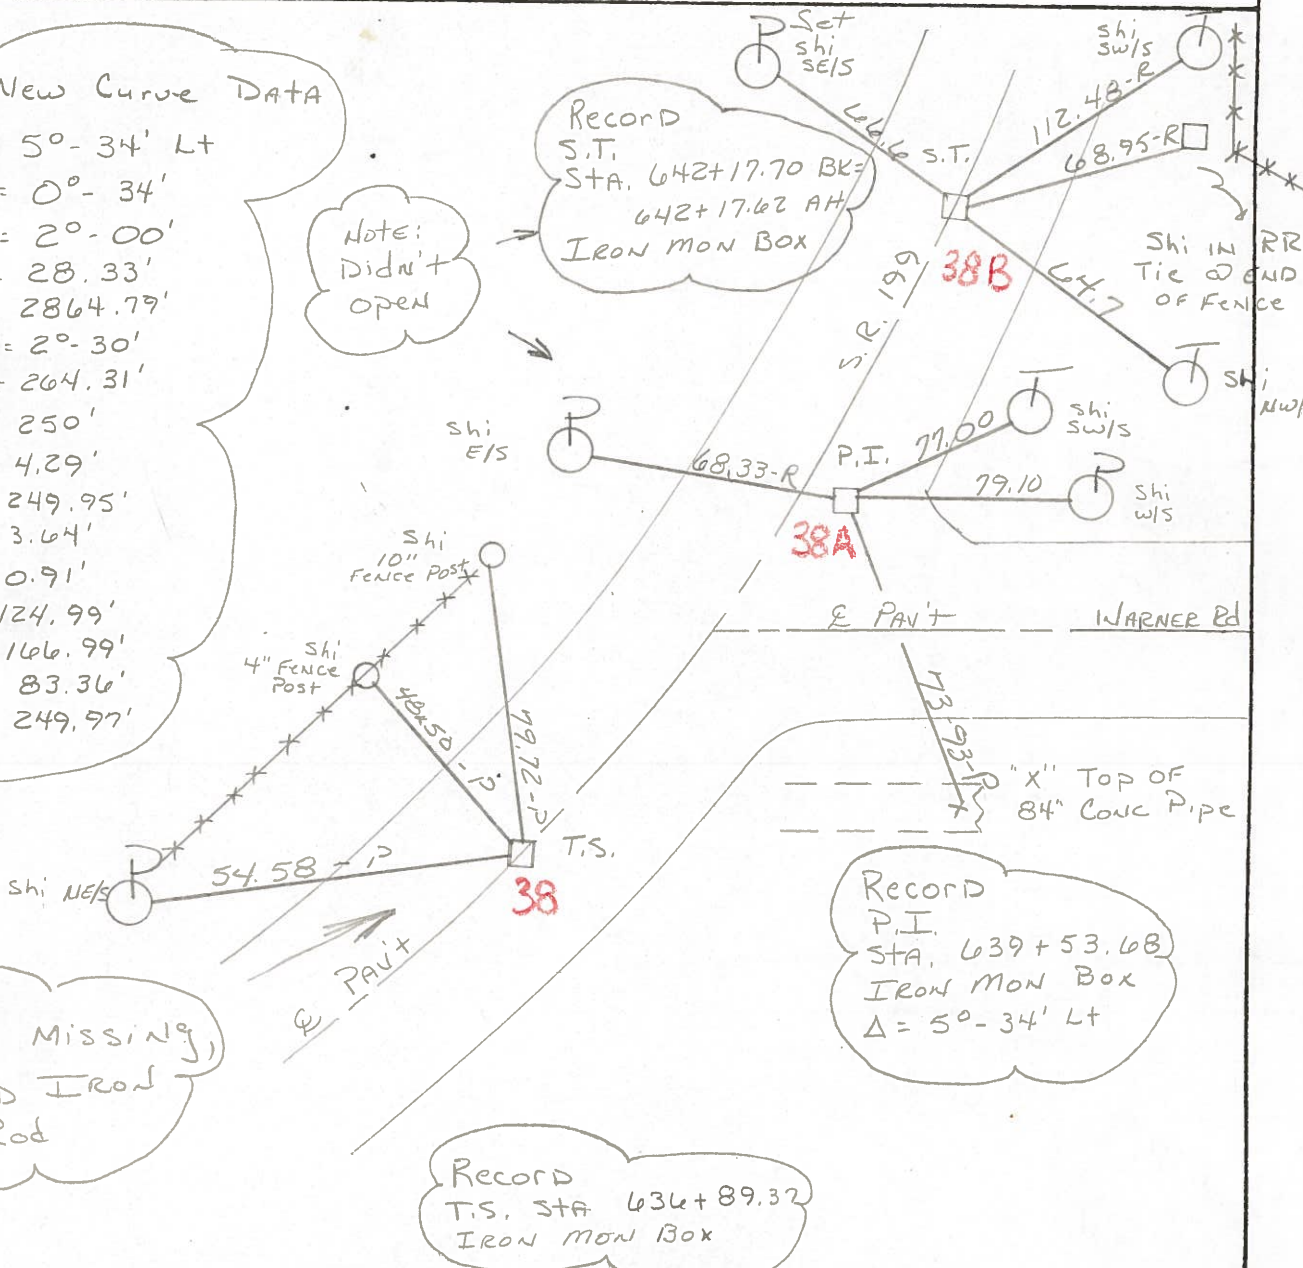 New Curve Data
5°-34' Lt
= 0°-34'
= 2°-00'
28.33'
2864.79'
= 2°-30'
264.31'
250'
4.29'
249.95'
3.64'
0.91'
124.99'
166.99'
83.36'
249.97'
Note:
Didn't
open
Record
S.T.
Sta. 642+17.70 BK=
642+17.62 AH
Iron Mon Box
Set
Shi
SE/S
66.6
S.T.
Shi
SW/S
112.48-R
68.95-R
38B
64.7
Shi in RR
Tie @ END
OF Fence
Shi
NW/
S.R. 199
Shi
E/S
68.33-R
P.I.
77.00
Shi
SW/S
79.10
Shi
W/S
38A
Shi
10"
Fence Post
Shi
4" Fence
Post
48.50-P
79.72-P
℄ Pav't
Warner Rd
73.93-P
"X" Top OF
84" Conc Pipe
Shi NE/S
54.58-P
T.S.
38
℄ Pav't
Record
P.I.
Sta. 639+53.68
Iron Mon Box
Δ= 5°-34' Lt
Missing,
Iron
Rod
Record
T.S. Sta 636+89.37
Iron Mon Box